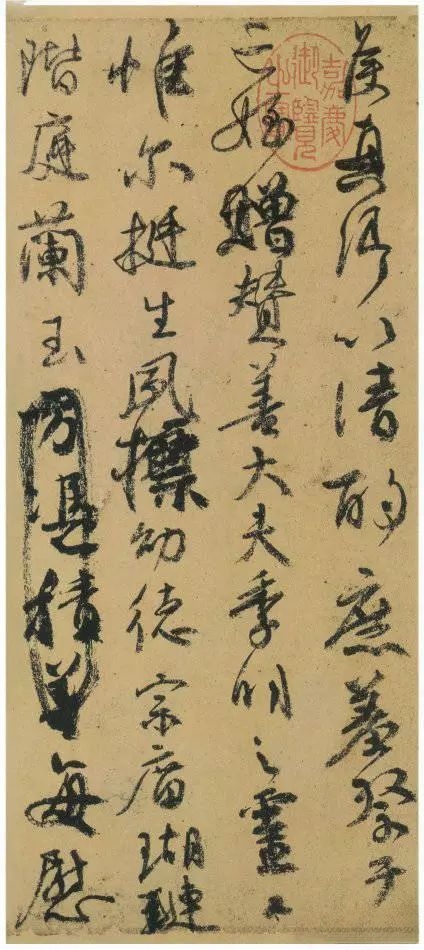 侯真卿以清酌庶羞祭于
亡姪贈贊善大夫季明之靈曰
惟尔挺生夙標幼德宗廟瑚璉
階庭蘭玉方馮積善每慰
嘉慶御覽之寶